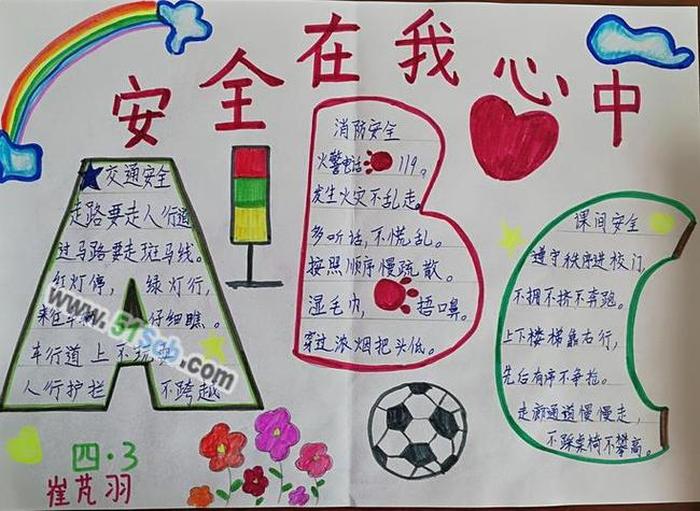 安全在我心中
交通安全
走路要走人行道
过马路要走斑马线。
红灯停, 绿灯行,
来往车辆 仔细瞧。
车行道上不玩耍
人行护栏 不跨越
消防安全
火警电话 119。
发生火灾不乱走。
多听话,不慌乱。
按照顺序慢疏散。
湿毛巾, 捂口鼻。
穿过浓烟把头低。
课间安全
遵守秩序进校门,
不拥不挤不奔跑。
上下楼梯靠右行,
先后有序不争抢。
走廊通道慢慢走,
不踩桌椅不攀高。
四·3
崔芃羽
www.51Scb.com